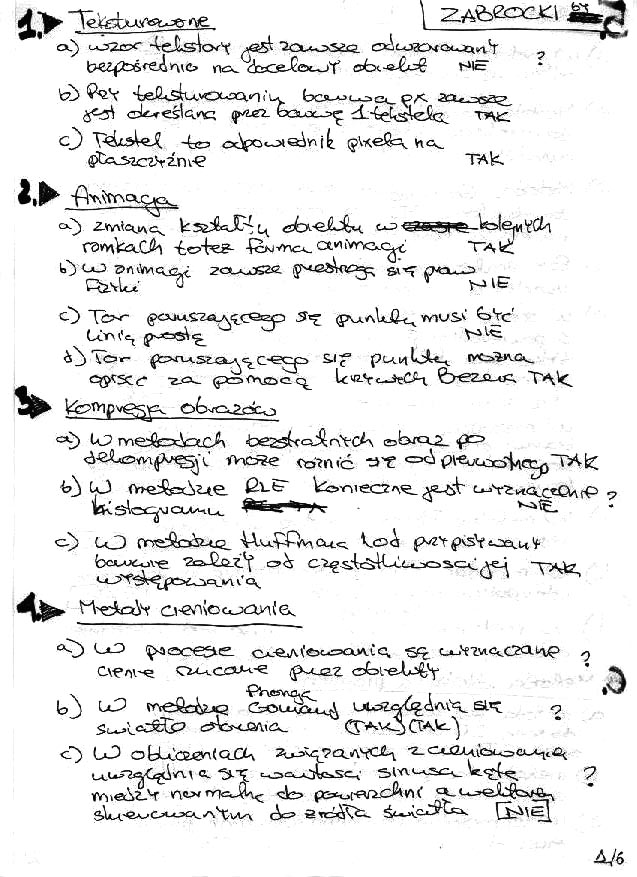 ZABROCKI
1. Teksturowone
a) wzor tekstory jest zawsze odwzorowany
bezpośrednio na docelowy obiekt NIE ?
b) Pzy teksturowaniu barwa px zawsze
jest określana przez barwę 1 teksela TAK
c) Teksel to odpowiednik pixela na
płaszczyźnie TAK
2. Animacja
a) zmiana kształtu obiektu w kolejnych
ramkach to też forma animagi TAK
b) w animagi zawsze przestrzega się praw
Fizyki NIE
c) Tor poruszającego się punktu musi być
linią prostą NIE
d) Tor poruszającego się punktu można
opisać za pomocą krzywych Beziera TAK
3. Kompresja obrazów
a) W metodach bezstratnych obraz po
dekompresji może roznić się od pierwotnego TAK
b) W metodzie RLE konieczne jest wyznaczenie ?
histogramu NIE
c) W metodzie Huffmana kod przypisywany
barwie zależy od częstotliwosci jej TAK
występowania
4. Metody cieniowania
a) W procesie cieniowania są wyznaczane
cienie rzucane przez obiekty ?
Phonga
b) W metodzie Gouraud uwzględnia się ?
światło otoczenia (TAK) (TAK)
c) W obliczeniach związanych z cieniowaniem
uwzględnia się wartości sinusa kąta ?
miedzy normalną do powierzchni a wektorem
skierowanym do źródła światła [NIE]
1/6